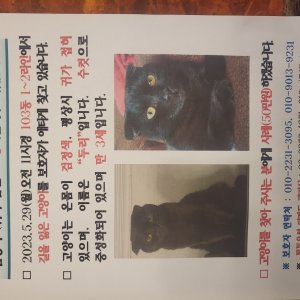 □ 2023.5.29(월)오전 11시경 103동 1~2라인에서
길을 잃은 고양이를 보호자가 애타게 찾고 있습니다.
□ 고양이는 온몸이 검정색, 평상시 귀가 접혀
있으며, 이름은 "두리"입니다. 수컷으로
중성화되어 있으며 만 3세입니다.
□ 고양이를 찾아 주시는 분에게 사례(50만원)하겠습니다.
※ 보호자 연락처 : 010-2231-3095, 010-9013-9231